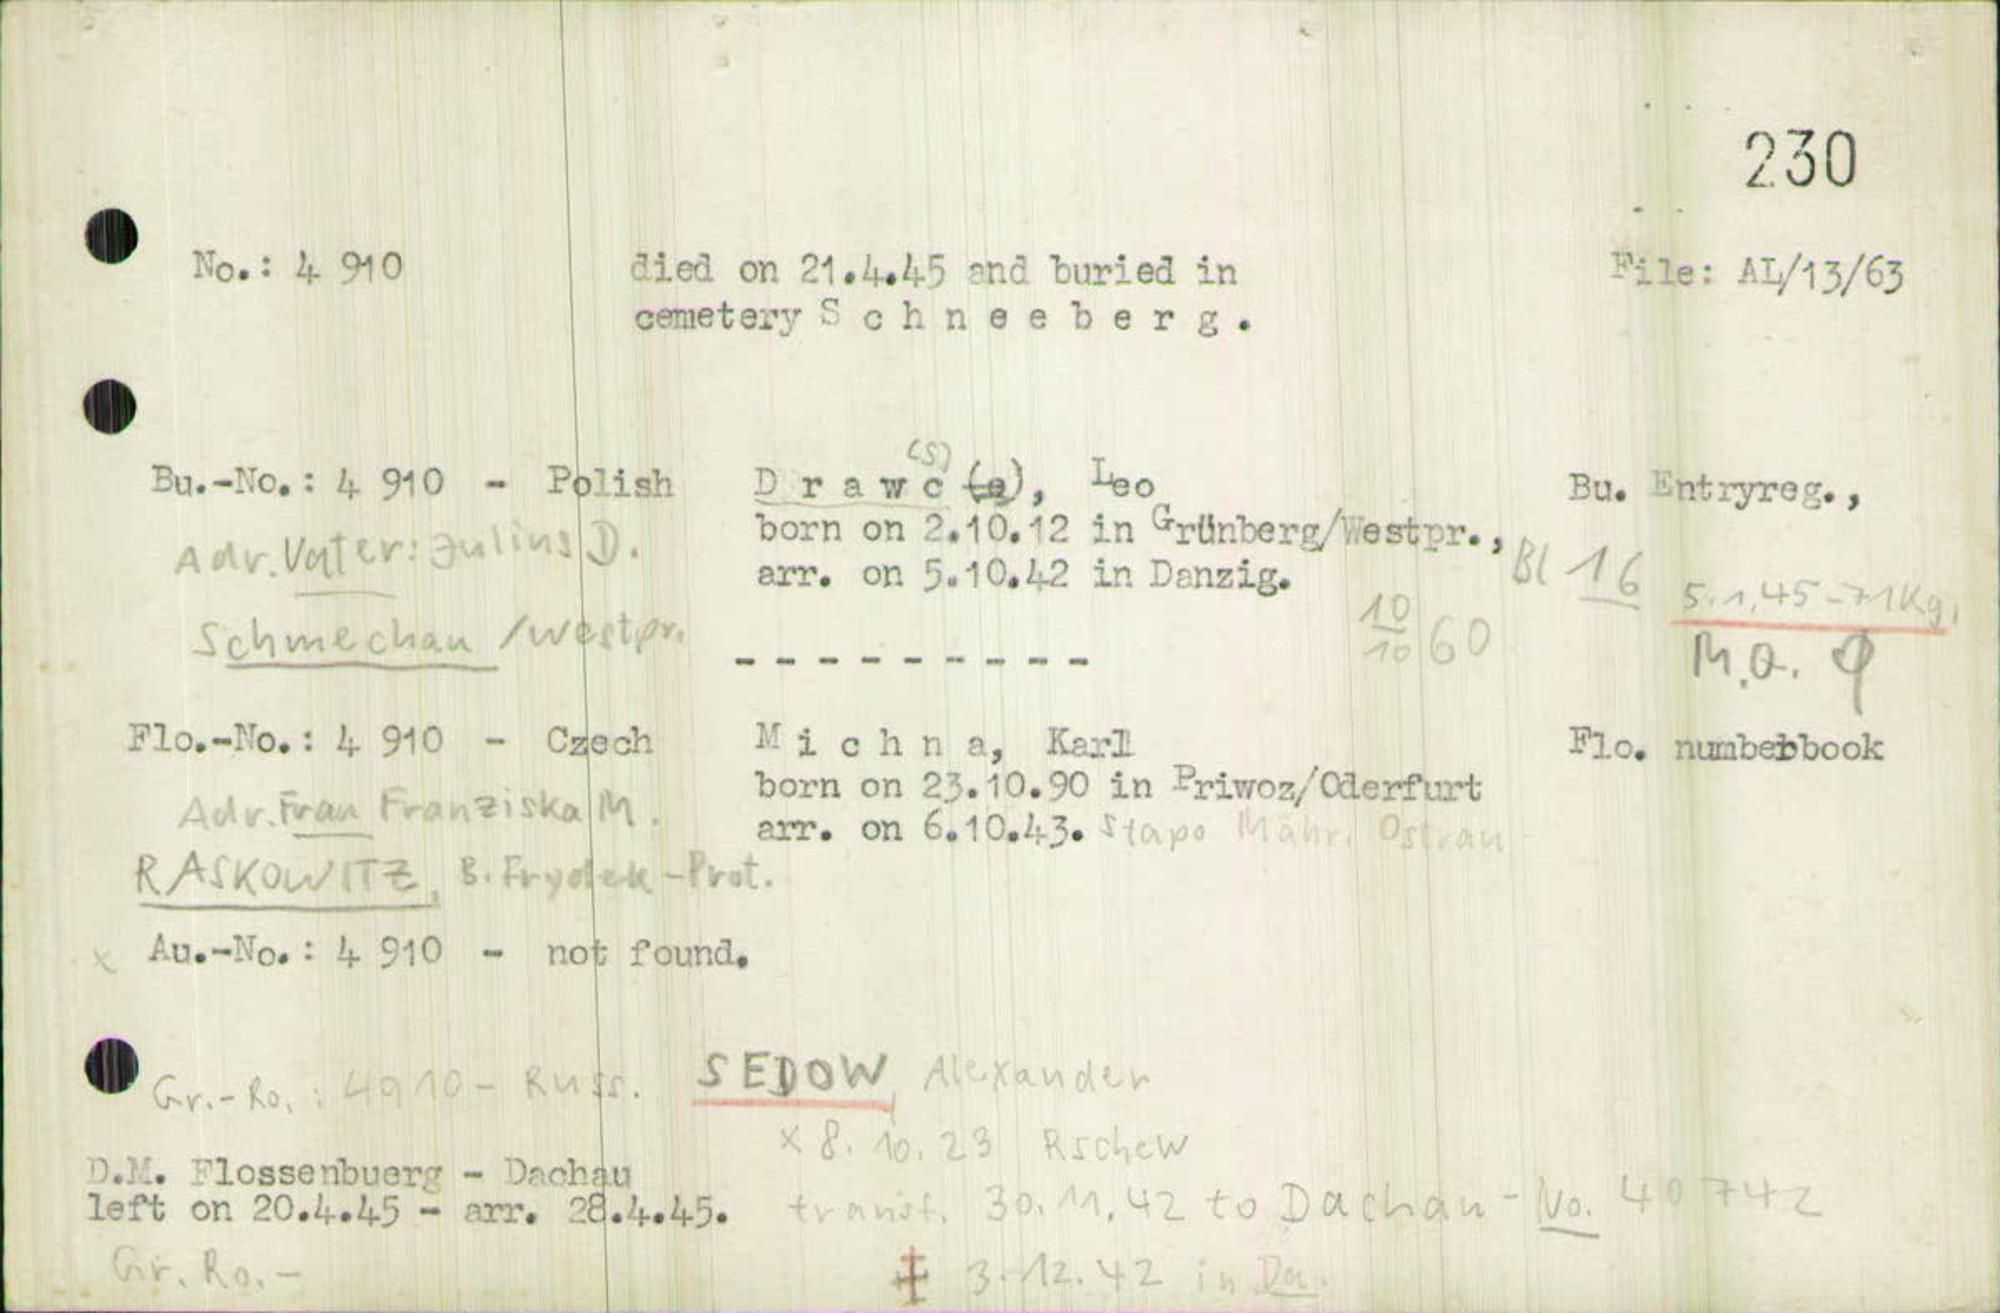 230
No.: 4 910 died on 21.4.45 and buried in File: AL/13/63
cemetery S c h n e e b e r g .
(s)
Bu.-No.: 4 910 - Polish D r a w c (e), Leo Bu. Entryreg.,
Adr. Vater: Julius D. born on 2.10.12 in Grünberg/Westpr.,
arr. on 5.10.42 in Danzig. Bl 16 5.1.45-71Kg.
Schmechau /Westpr. 10/10 60 M.a.
- - - - - - - - -
Flo.-No.: 4 910 - Czech M i c h n a, Karl Flo. numberbook
Adr. Frau Franziska M. born on 23.10.90 in Priwoz/Oderfurt
arr. on 6.10.43. Stapo Mähr. Ostrau
RASKOWITZ, B. Frydek-Prot.
x Au.-No.: 4 910 - not found.
Gr.-Ro.: 4910 - Russ. SEDOW, Alexander
x 8.10.23 Rschew
D.M. Flossenbuerg - Dachau
left on 20.4.45 - arr. 28.4.45. transf. 30.11.42 to Dachau - No. 40742
Gr. Ro.- ‡ 3.12.42 in Da.